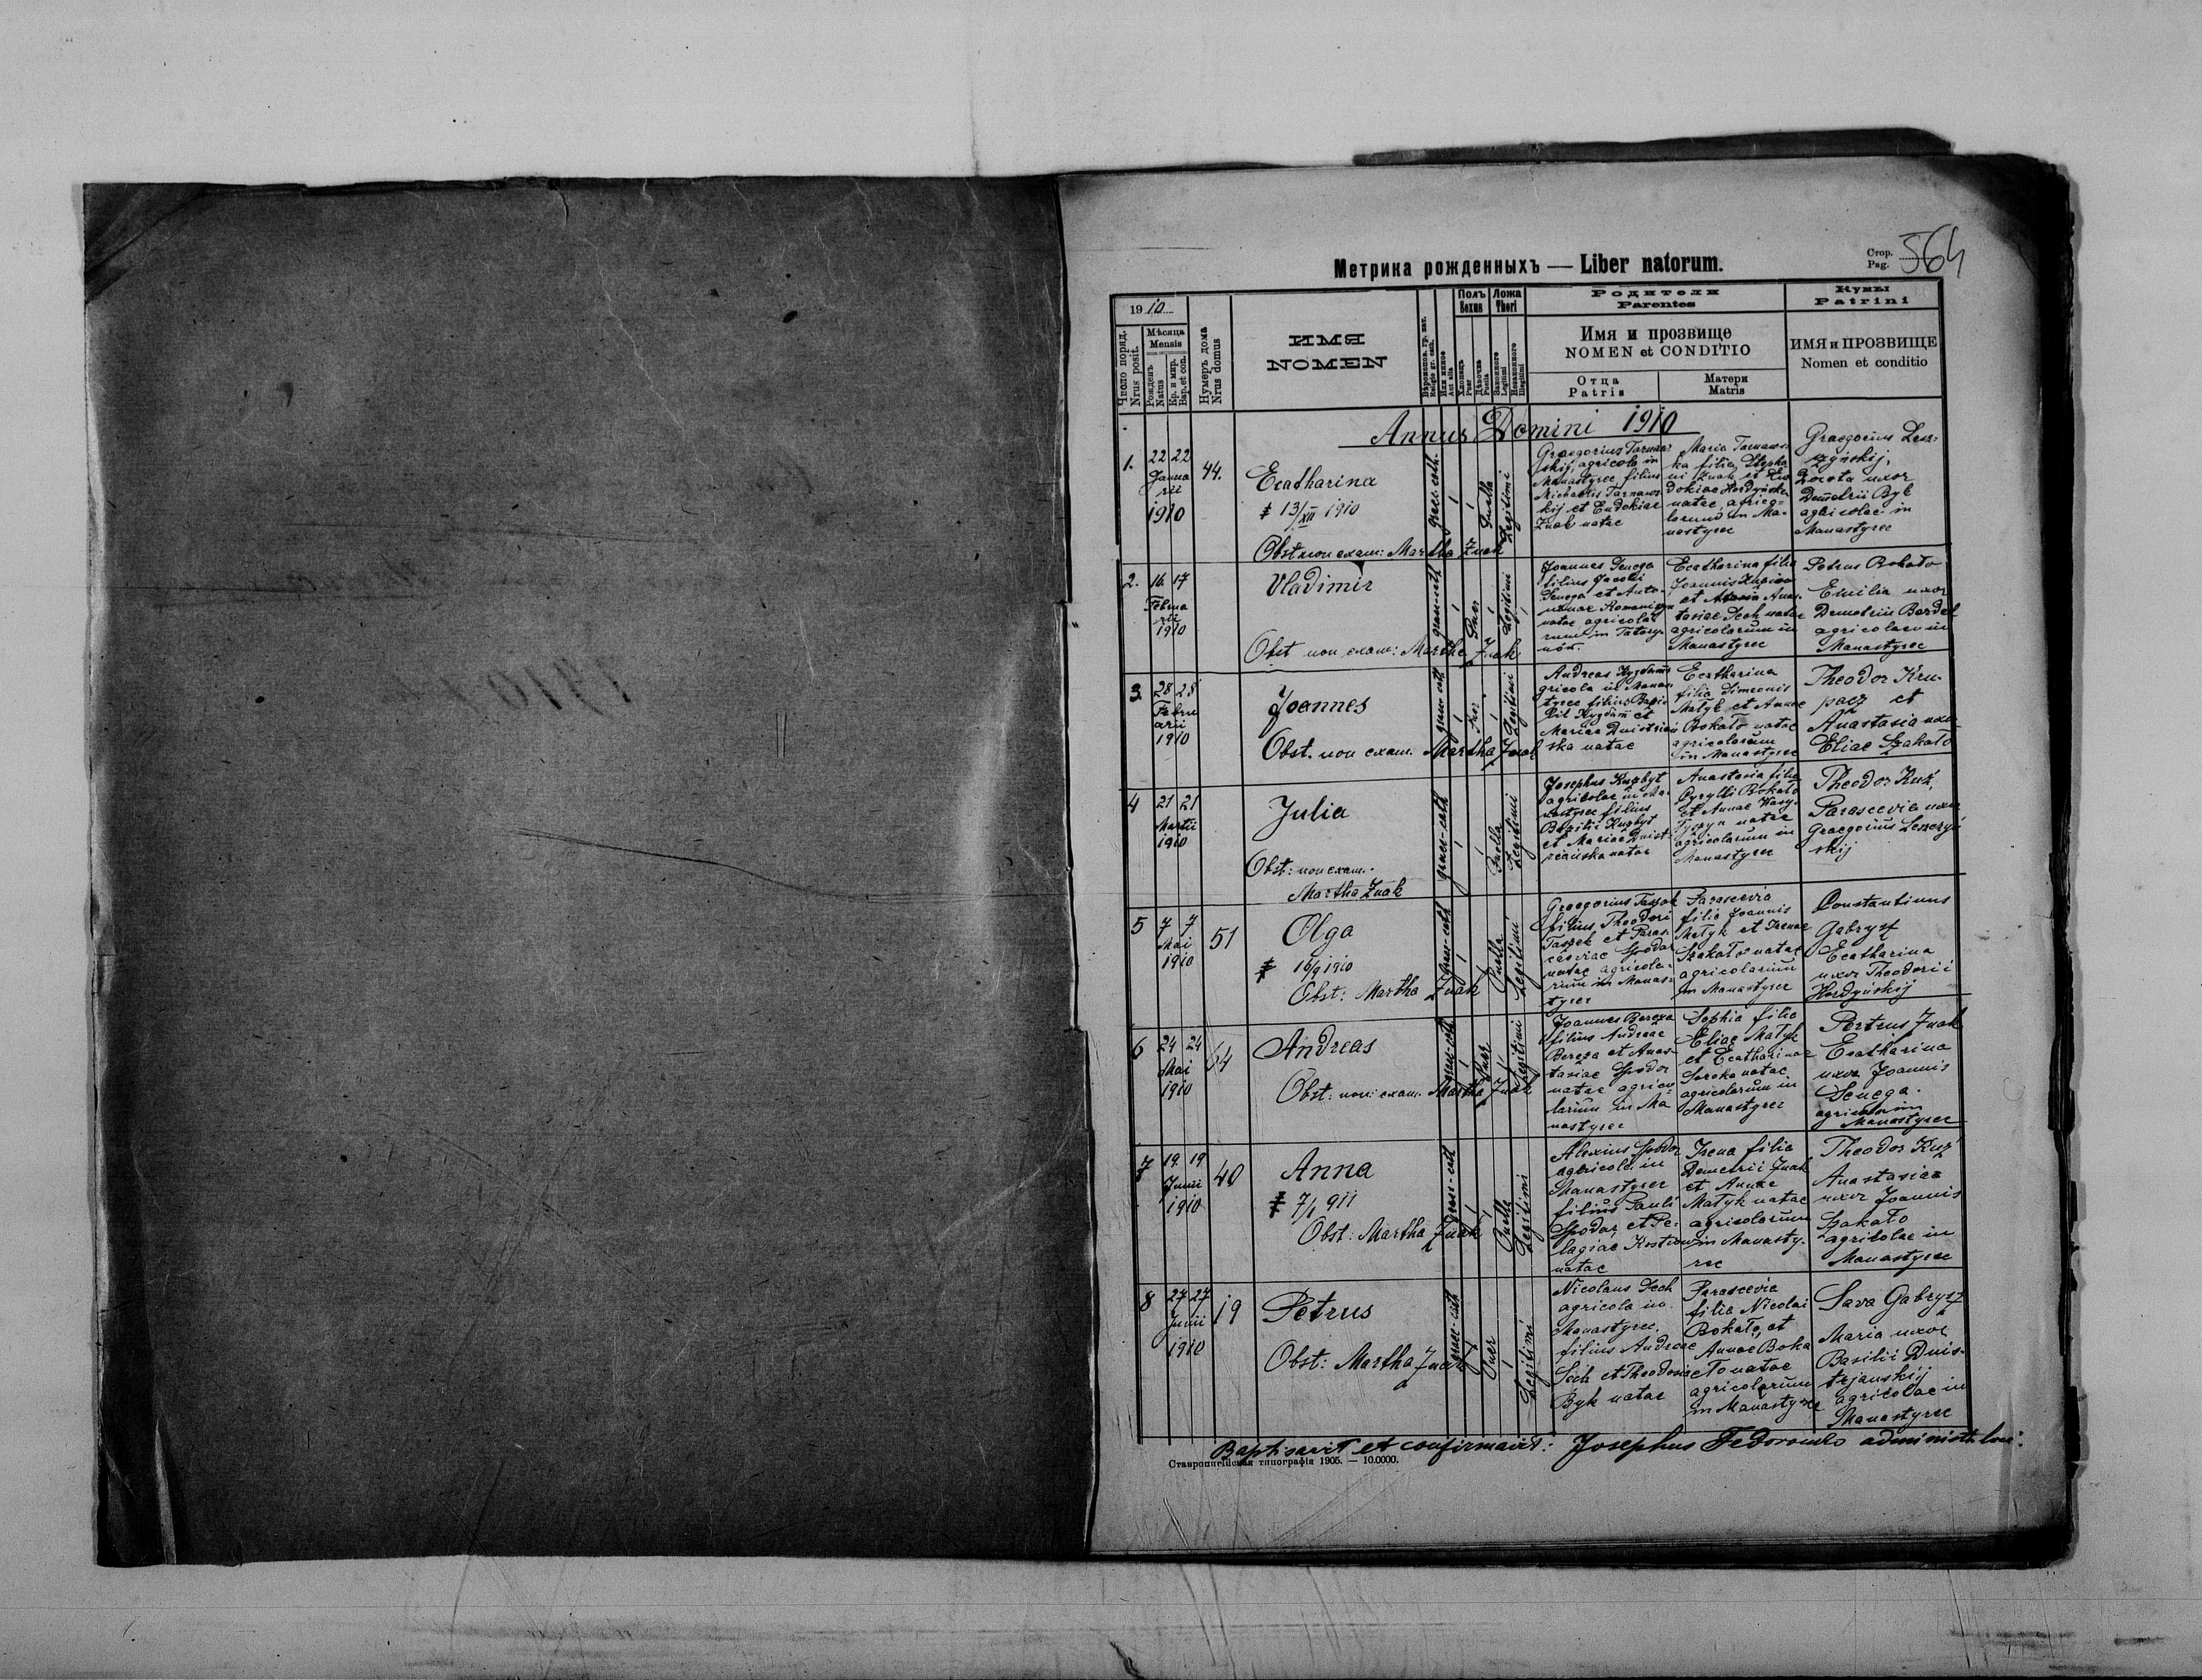 Метрика рожденныхъ — Liber natorum.
Стор.
Pag. 564
1910
Число поряд.
Nrus posit.
Мѣсяца
Mensis
Рожденъ
Natus
Кр. и мир.
Bap. et con.
Нумеръ дома
Nrus domus
ИМЯ
NOMEN
Полъ
Sexus
Ложа
Thori
Родители
Parentes
Имя и прозвище
NOMEN et CONDITIO
Отца
Patris
Матери
Matris
Кумы
Patrini
ИМЯ и ПРОЗВИЩЕ
Nomen et conditio
Annus Domini 1910
1.
22 22
Janua
rii
1910
44.
Ecatharina
‡ 13/XII 1910
Obst non exam: Martha Znak
graec-cath.
Puella
Legitimi
Graegorius Tarnaw
skij, agricola in
Manastyrec filius
Michaelis Tarnaws
kij et Eudokiae
Znak natae
Maria Tarnaws
ka filia Stepha
ni Znak et Eu
dokiae Hordyńska
natae, agrico=
larum in Ma-
nastyrec
Graegorius Lesz-
czyńskij,
uxor
Demetrii Byk
agricolae in
Manastyrec
2.
16 17
Februa
rii
1910
Vladimir
Obst non exam: Martha Znak
graec-cath
Puer
Legitimi
Joannes Senega
filius Jacobi
Senega et Anto-
ninae
natae agricola
rum in Tatary-
nów.
Ecatharina filia
Joannis
et Anas-
tasiae Sech natae
agricolarum in
Manastyrec
Petrus Bokało
Emilia uxor
Demetrii
agricolae in
Manastyrec
3
28 28
Febru
arii
1910
Joannes
Obst. non exam. Martha Znak
graec-cath
Puer
Legitimi
Andreas
gricola in Manas
tyrec filius Basi
lii et
Mariae Dnistrian
ska natae
Ecatharina
filia Simeonis
Matyk et Annae
Bokało natae
agricolarum
in Manastyrec
Theodor Kru-
pacz et
Anastasia uxor
Eliae Szakało
4
21 21
Martii
1910
Julia
Obst: non exam.
Martha Znak
graec-cath
Puella
Legitimi
Josephus
agricolae in Ma-
nastyrec filius
Basilii
et Mariae Dnist-
riańska natae
Anastasia filia
Cyrylli Bokało
et Annae Wasy-
natae
agricolarum in
Manastyrec
Theodor Kuź,
Parascevia uxor
Graegorius Leszczyń
skij
5
7 7
Mai
1910
51
Olga
‡ 16/9 1910
Obst: Martha Znak
graec-cath
Puella
Legitimi
Graegorius Taszek
filius Theodori
Taszek et Paras-
ceviae Spodar
natae agricola-
rum in Manas-
tyrec
Parascevia
filia Joannis
Matyk et Irenae
Szakało natae
agricolarum
in Manastyrec
Constantinus
Gabrysz
Ecatharina
uxor Theodorii
Hordyńskij
6
24 24
Mai
1910
64
Andreas
Obst: non: exam. Martha Znak
graec-cath
Puer
Legitimi
Joannes Bereza
filius Andreae
Bereza et Anas-
tasiae Spodar
natae agrico-
larum in Ma
nastyrec
Sophia filia
Eliae Matyk
et Ecatharinae
Soroka natae
agricolarum in
Manastyrec
Petrus Znak
Ecatharina
uxor Joannis
Senega.
agricolae in
Manastyrec
7
19 19
Junii
1910
40
Anna
‡ 7/I 911
Obst: Martha Znak
graec-cath
Puella
Legitimi
Alexius Spodar
agricola in
Manastyrec
filius Pauli
Spodar, et Pe-
lagiae Kostiow
natae
Irena filia
Demetrii Znak
et Annae
Matyk natae
agricolarum
in Manasty-
rec
Theodor Kuź
Anastasia
uxor Joannis
Szakało
agricolae in
Manastyrec
8
27 27
Junii
1910
19
Petrus
Obst: Martha Znak
graec-cath
Puer
Legitimi
Nicolaus Sech
agricola in
Manastyrec,
filius Andreae
Sech et Theodosiae
Byk natae
Parascevia
filia Nicolai
Bokało, et
Annae Boka
ło natae
agricolarum
in Manastyrec
Sava Gabrysz
Maria uxor
Basilii Dnis-
trjanskij
agricolae in
Manastyrec
Baptisavit et confirmavit: Josephus Fedorowicz administ. loci.
Ставропигійская типографія 1905. — 10.0000.